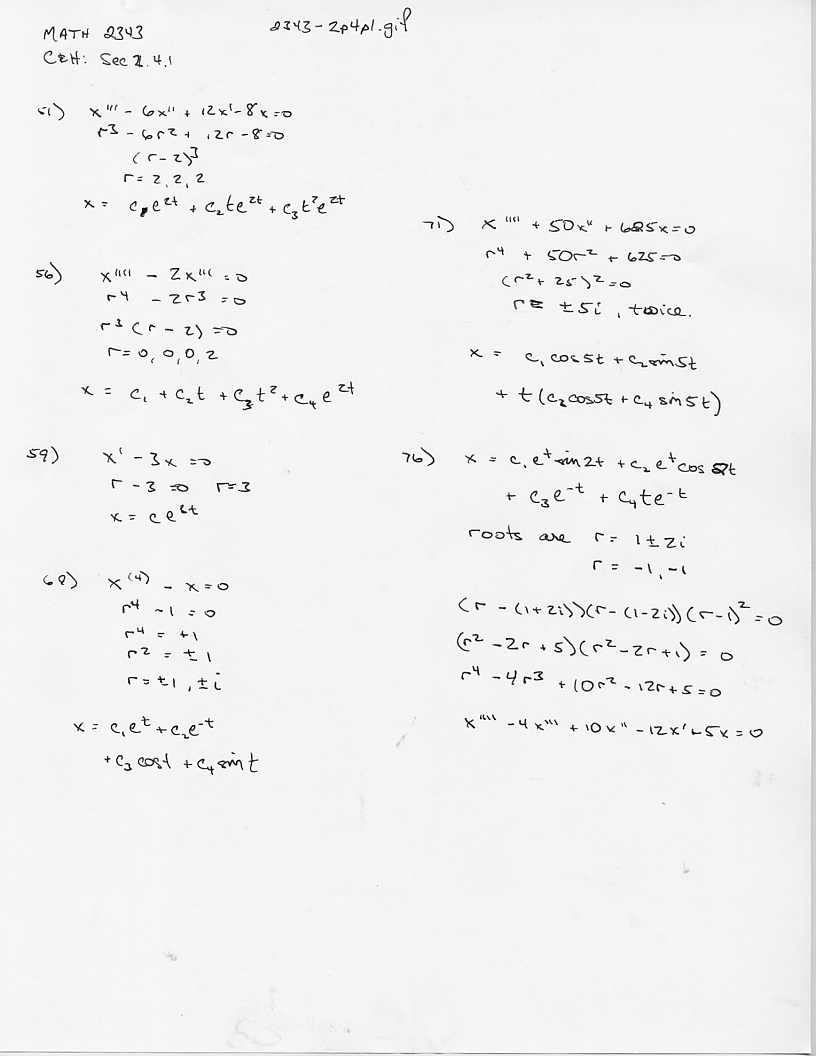 MATH 2343
2343-2p4p1.gif
C&H: Sec 2.4.1
51) x''' - 6x'' + 12x' - 8x = 0
r³ - 6r² + 12r - 8 = 0
(r - 2)³
r = 2, 2, 2
x = c₁e^2t + c₂te^2t + c₃t²e^2t
56) x'''' - 2x''' = 0
r⁴ - 2r³ = 0
r³(r - 2) = 0
r = 0, 0, 0, 2
x = c₁ + c₂t + c₃t² + c₄e^2t
59) x' - 3x = 0
r - 3 = 0 r = 3
x = ce^3t
68) x^(4) - x = 0
r⁴ - 1 = 0
r⁴ = +1
r² = ±1
r = ±1, ±i
x = c₁e^t + c₂e^-t
+ c₃ cos t + c₄ sin t
71) x'''' + 50x'' + 625x = 0
r⁴ + 50r² + 625 = 0
(r² + 25)² = 0
r = ±5i, twice.
x = c₁ cos 5t + c₂ sin 5t
+ t(c₂ cos 5t + c₄ sin 5t)
76) x = c₁e^t sin 2t + c₂e^t cos 2t
+ c₃e^-t + c₄te^-t
roots are r = 1 ± 2i
r = -1, -1
(r - (1+2i))(r - (1-2i))(r - 1)² = 0
(r² - 2r + 5)(r² - 2r + 1) = 0
r⁴ - 4r³ + 10r² - 12r + 5 = 0
x'''' - 4x''' + 10x'' - 12x' + 5x = 0